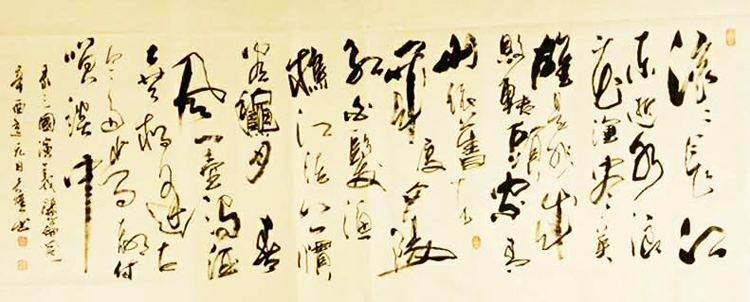 滚滚长江
东逝水浪
花淘尽英
雄是非成
败转头空青
山依舊在
几度夕阳
红白发渔
樵江渚上惯
看秋月春
风一壶浊酒
喜相逢古
今多少事都付
笑谈中
录三國演義
元日